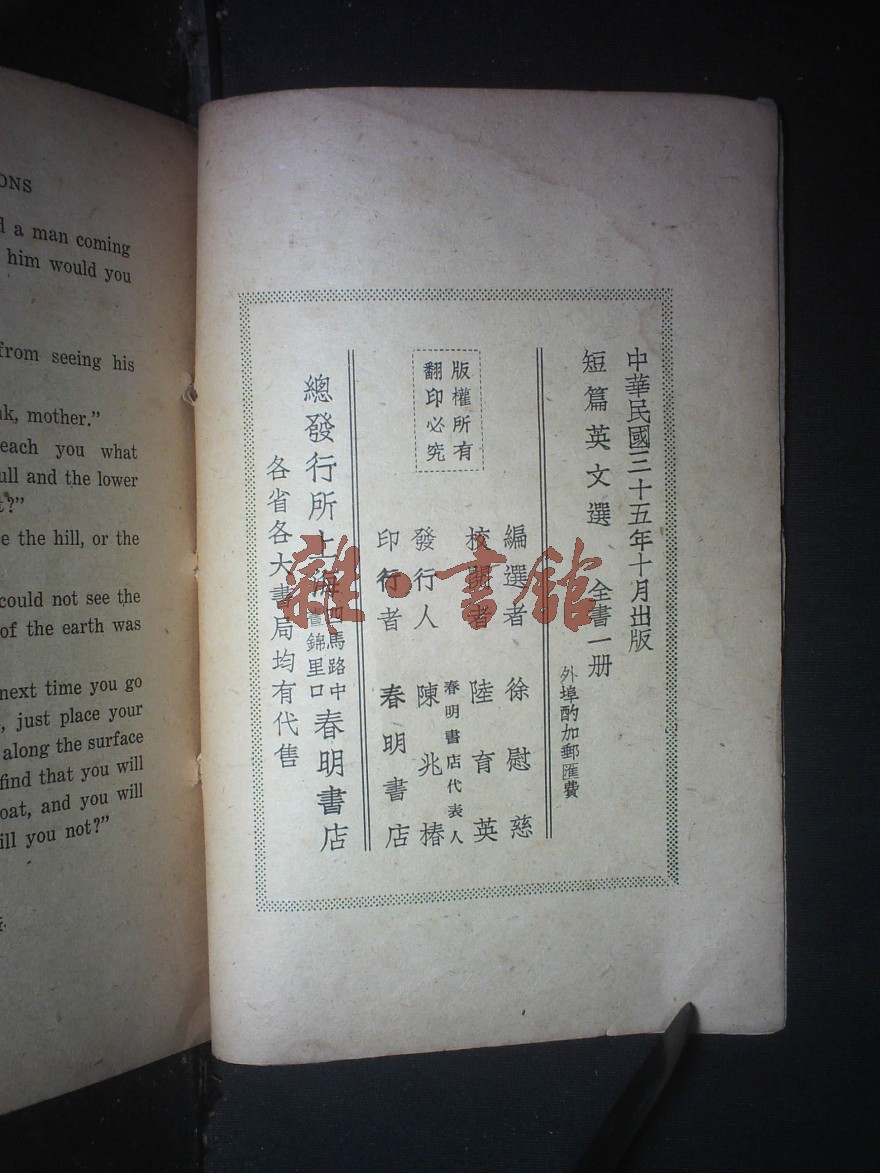 ONS
a man coming
him would you
from seeing his
mother."
each you what
ull and the lower
t?"
e the hill, or the
could not see the
of the earth was
next time you go
just place your
along the surface
find that you will
oat, and you will
ill you not?"
中華民國三十五年十月出版
短篇英文選 全書一册
外埠酌加郵匯費
版權所有
翻印必究
編選者 徐慰慈
校閱者 陸育英
春明書店代表人
發行人 陳兆椿
印行者 春明書店
總發行所上海
四馬路中
晝錦里口
春明書店
各省各大書局均有代售
雜·書館